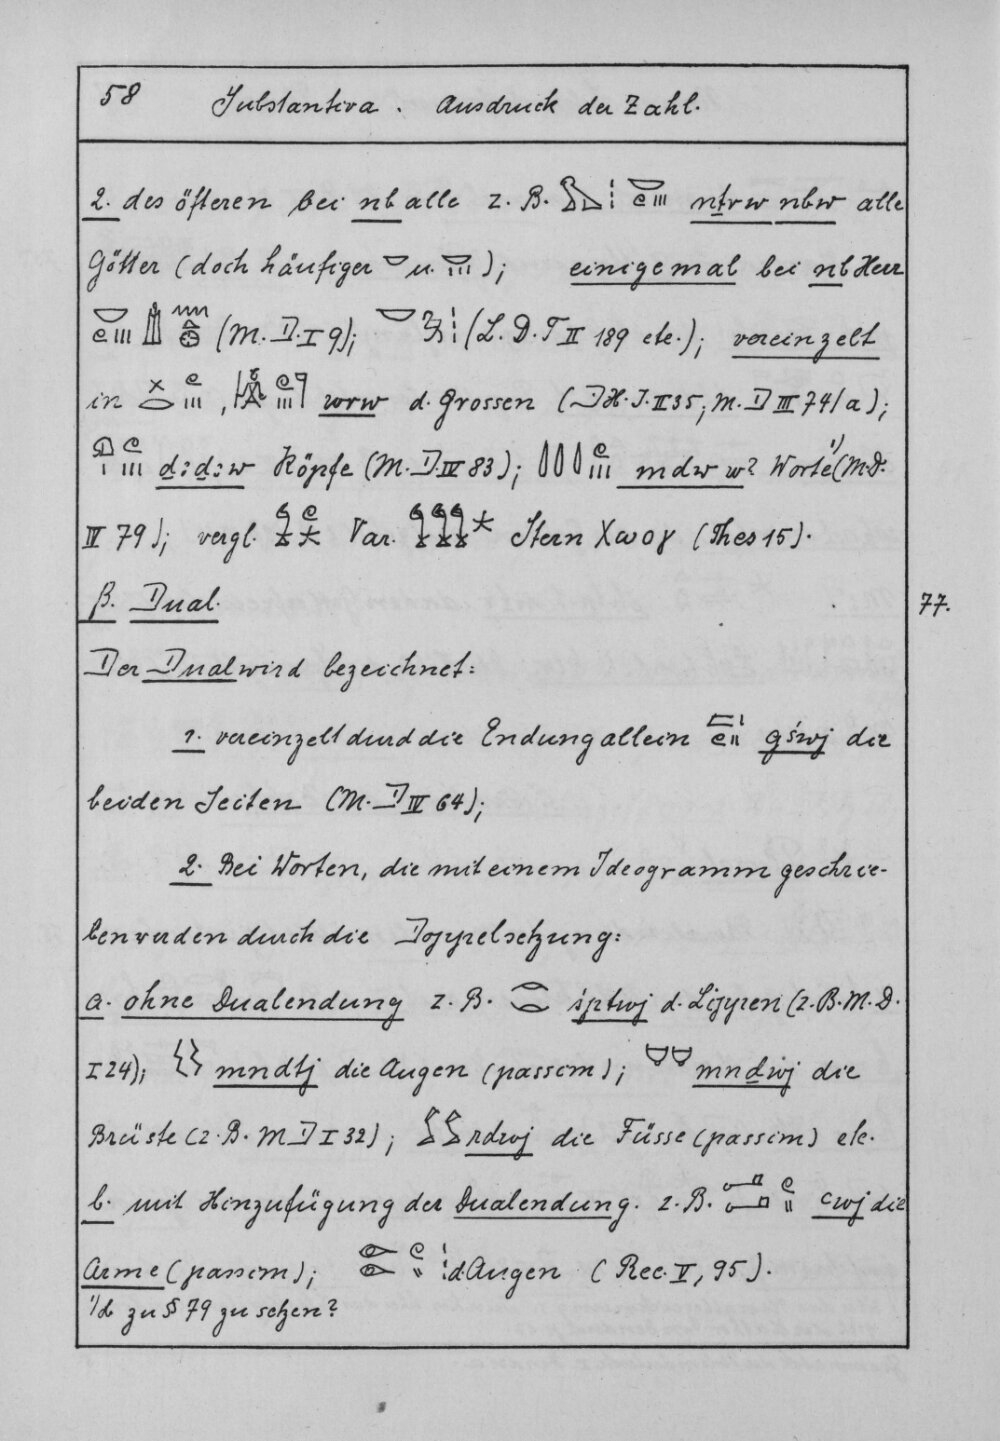 58 Substantiva. Ausdruck der Zahl.
2. des öfteren bei nb alle z. B. nṯrw nbw alle
Götter (doch häufiger u. ); einigemal bei nb Herr
(M. D. I 9); (L. D. T II 189 etc.); vereinzelt
in , wrw d. Grossen (D H. J. II 35; M. D III 74/a);
ḏꜣḏꜣw Köpfe (M. D. IV 83); mdw w? Worte ¹⁾ (M. D.
IV 79); vergl. Var. Stern Χωογ (Thes 15).
β. Dual.
77.
Der Dual wird bezeichnet:
1. vereinzelt durch die Endung allein gśwj die
beiden Seiten (M. D IV 64);
2. Bei Worten, die mit einem Ideogramm geschrie-
ben werden durch die Doppelsetzung:
a. ohne Dualendung z. B. śptwj d. Lippen (z. B. M. D.
I 24); mndtj die Augen (passim); mnḏwj die
Brüste (z. B. M D I 32); rdwj die Füsse (passim) etc.
b. mit Hinzufügung der Dualendung. z. B. cwj die
Arme (passim); d. Augen (Rec. V, 95).
zu § 79 zu setzen?